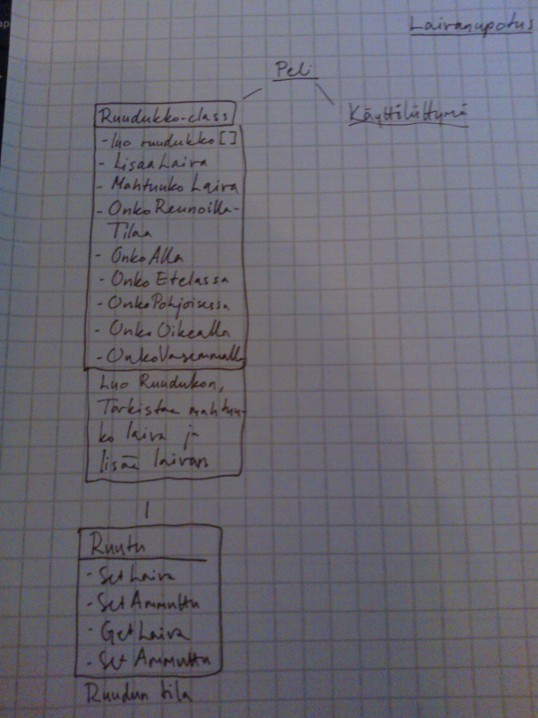 Laivanupotus
Peli
Käyttöliittymä
Ruudukko-class
- luo ruudukko []
- LisaaLaiva
- Mahtuuko Laiva
- OnkoReunoilla-
Tilaa
- OnkoAlla
- Onko Etelassa
- OnkoPohjoisessa
- Onko Oikealla
- OnkoVasemmalla
Luo Ruudukon,
Tarkistaa mahtuu-
ko laiva ja
lisää laivan
Ruutu
- Set Laiva
- Set Ammuttu
- Get Laiva
- Set Ammuttu
Ruudun tila